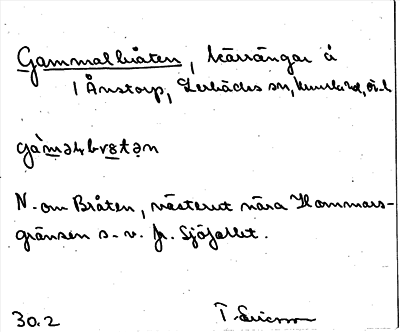 Gammalbråten, kärrängar å
1 Ånstorp, Lerbäcks sn, Kumla hd,
gàmalbrɵtən
N. om Bråten, västerut nära Hammars-
gränsen s. v. fr. Sjöfallet.
30.2 T. Ericsson